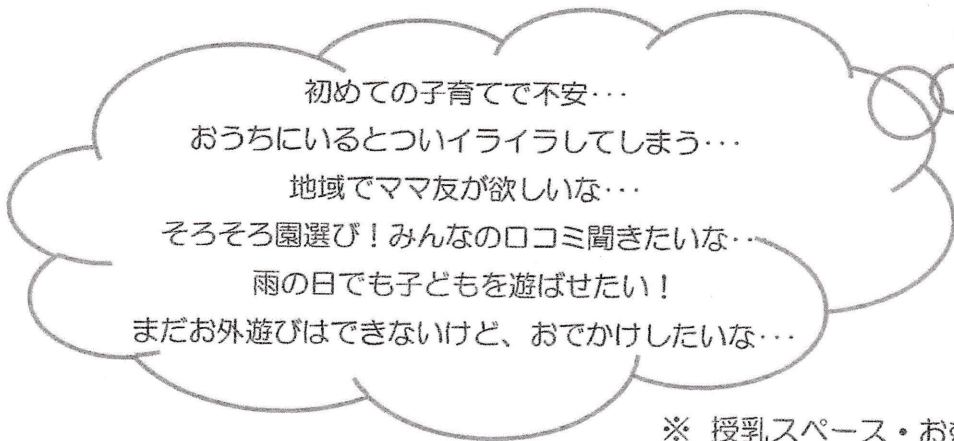 初めての子育てで不安…
おうちにいるとついイライラしてしまう…
地域でママ友が欲しいな…
そろそろ園選び！みんなの口コミ聞きたいな…
雨の日でも子どもを遊ばせたい！
まだお外遊びはできないけど、おでかけしたいな…
※ 授乳スペース・お